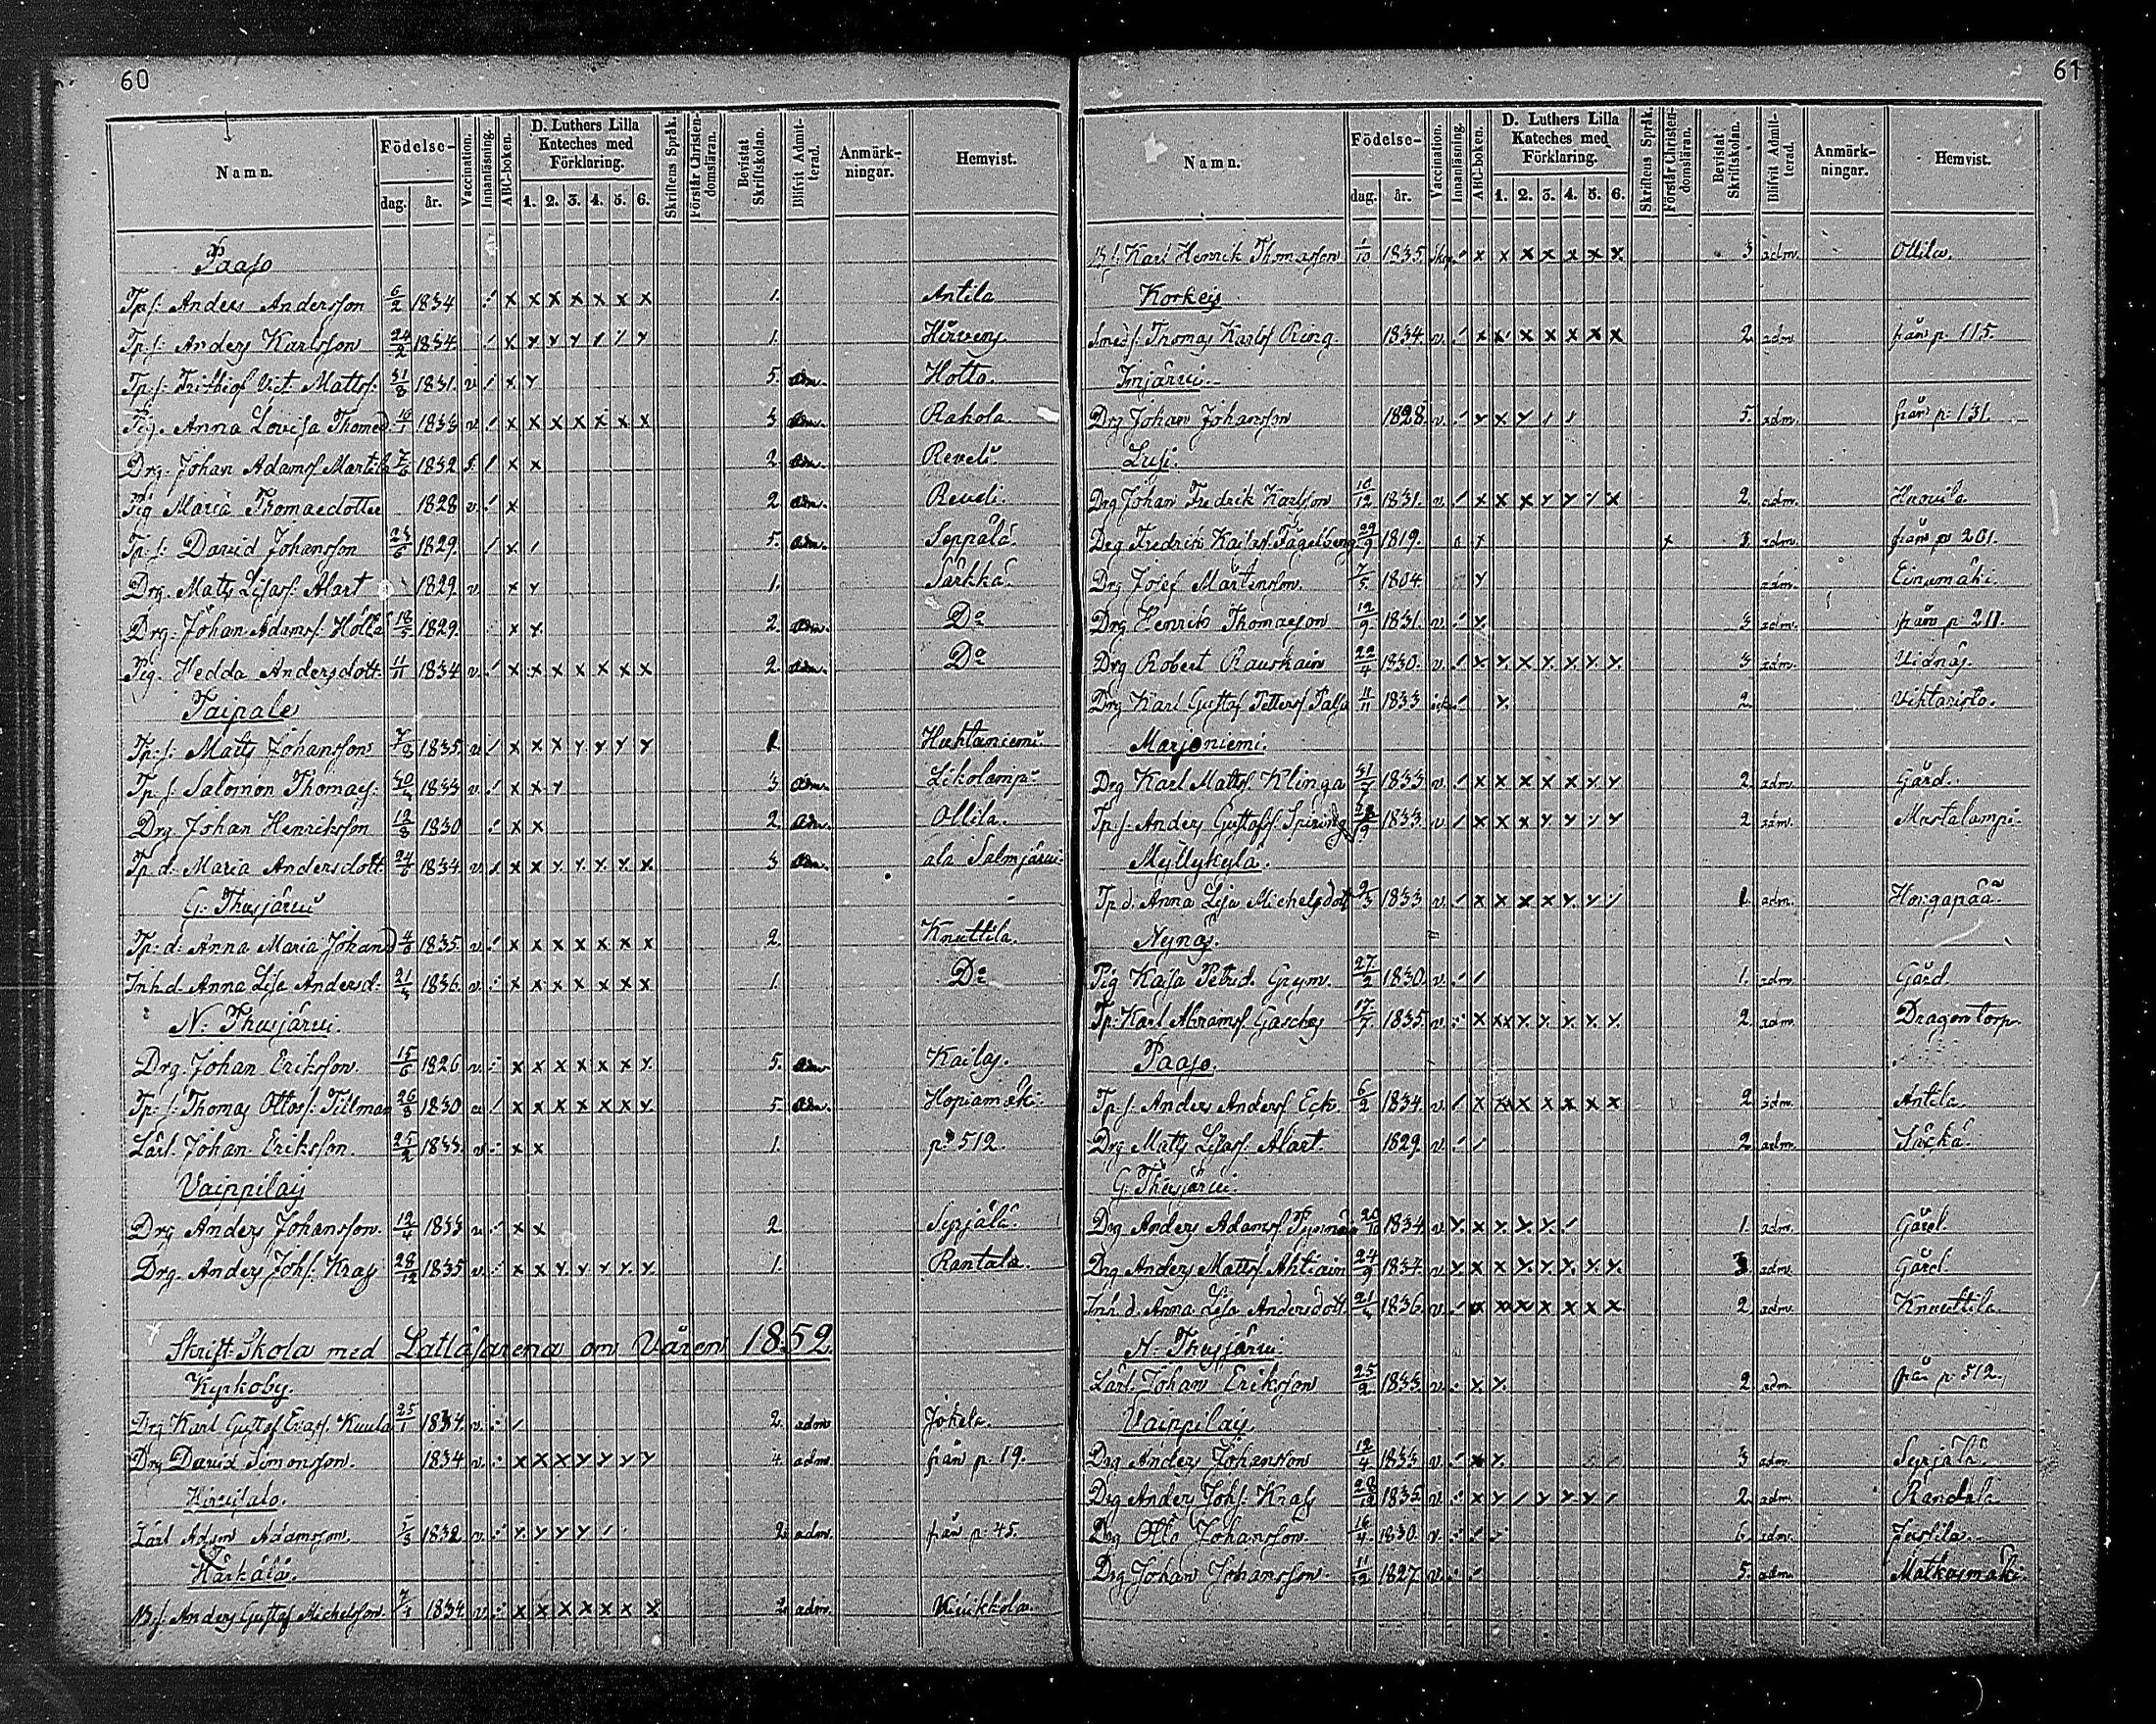 60
Namn. Födelse- dag. år. Vaccination. Innanläsning. ABC-boken. D. Luthers Lilla Kateches med Förklaring. 1. 2. 3. 4. 5. 6. Skriftens Språk. Förstår Christendomsläran. Bevistat Skriftskolan. Blifvit Admitterad. Anmärkningar. Hemvist.
Paaso
Tp: s: Anders Andersson 6/2 1834 x x x x x x x 1. Antila
Tp: s: Anders Karlsson 24/2 1834 1. Hirvens
Tp: s: Frithiof Vict. Matts: 31/8 1831. v x 5. adm. Hotto.
Pig. Anna Lovisa Thomasd 1833 v. x x x x x x x 3 adm. Rahola.
Drg. Johan Adams: Martila 1832 x x 2 adm. Reveli.
Pig Maria Thomasdotter 1828 v. x 2 adm. Reveli.
Tp: s: David Johansson 1829. x 5. adm. Seppälä.
Drg. Matts Lisas: Alart 1829. v x 1. Särkkä.
Drg: Johan Adams: Holla 18/5 1829. x 2. adm. Do
Pig. Hedda Andersdott. 11/11 1834 v. x x x x x x x 2. adm. Do
Taipale
Tp: s: Matts Johansson 1835 v x x x 1 Huhtaniemi.
Tp: s: Salomon Thomas: 1833 v. x x 3 adm.
Drg. Johan Henriksson 12/8 1830 x x 2. adm. Ollila.
Tp d: Maria Andersdott. 24/6 1834. v. x x 3 adm. ala Salmjärvi
G: Thusjärvi
Tp: d: Anna Maria Johansd 1835. v. x x x x x x x 2. Knuttila.
Inh. d. Anna Lisa Andersd. 1836. v. x x x x x x x 1. Do
N: Thusjärvi.
Drg. Johan Eriksson. 15/6 1826 v. x x x x x x 5. adm. Kailas.
Tp: s: Thomas Ottos: Tillman 26/8 1830 x x x x x x 5. adm. Hopiamäki
Lärl. Johan Eriksson. 25/2 1833. v. x x 1. p. 512.
Vaippilais
Drg Anders Johansson. 12/4 1833 v. x x 2. Syrjälä.
Drg. Anders Johs: Krass 28/12 1835 v. x x 1. Rantala.
Skrift-Skola med Latläsarena om Våren 1852
Kyrkoby.
Drg Karl Gustaf Evas: Kuula 25/1 1834. v. 2. adm Jokela.
Drg David Simonsson. 1834 v. x x x 4. adm. från p. 19.
Hirvisalo.
Lärl Adam Adamsson. 1832 v. 2. adm. från p. 45.
Härkälä.
Bs: Anders Gustaf Michelsson. 1834 v. x x x x x x x 2. adm.
61
Namn. Födelse- dag. år. Vaccination. Innanläsning. ABC-boken. D. Luthers Lilla Kateches med Förklaring. 1. 2. 3. 4. 5. 6. Skriftens Språk. Förstår Christendomsläran. Bevistat Skriftskolan. Blifvit Admitterad. Anmärkningar. Hemvist.
Bs: Karl Henrik Thomasson 1/10 1835. x x x x x x x 3 adm. Ollila.
Korkeis
Smeds: Thomas Karls: Ring. 1834. v. x x x x x x x 2. adm från p. 115.
Imjärvi.
Drg Johan Johansson 1828. v. x 5. adm. från p. 131.
Lusi.
Drg Johan Fredrik Karlsson 10/12 1831. v. x x x x 2. adm.
Drg Fredrik Kajsas: Fagelberg 29/9 1819. x x 3. adm. från p. 201.
Drg Josef Mårtensson. 7/5 1804. adm. Einomäki.
Drg Henrik Thomasson 12/9 1831. v. 3. adm. från p. 211.
Drg Robert Rauskain 22/4 1830. v. 3 adm. Vidnäs.
Drg Karl Gustaf Petters: 11/11 1833 2. Vihtaristo.
Marjoniemi.
Drg Karl Matts: Klinga 1833 v. x x x x x 2. adm. Gård.
Tp: s: Anders Gustafs: 1833. v. x x x 2 adm. Mustalampi.
Myllykylä.
Tp d: Anna Lisa Michelsdott 2/3 1833 v. x x x x 1. adm. Horgapää.
Nynäs.
Pig Kajsa Petrid. Grym. 27/2 1830. v. 1. adm. Gård.
Tp: Karl Abrams: Gasches 17/7 1835. v. 2. adm Dragontorp
Paaso.
Tp: s: Anders Anders: Eck. 6/2 1834. v. x x x x x x x 2. adm. Antila.
Drg Matts Lisas: Alart. 1829. v. 2. adm.
G. Thusjärvi.
Drg Anders Adams: 20/10 1834. v. 1. adm. Gård.
Drg Anders Matts: Ahtiain 24/9 1834. v. 3 adm. Gård.
Inh. d. Anna Lisa Andersdott. 1836. v. x x x x x x x 2. adm. Knuuttila.
N. Thusjärvi.
Lärl. Johan Eriksson 25/2 1833. v. x 2 adm från p. 512.
Vaippilais.
Drg Anders Johansson 12/4 1833 v. x 3 adm. Syrjälä.
Drg Anders Johs: Krass 28/12 1835. v. x 2. adm. Randala.
Drg Otto Johansson. 1830. v. 6. adm. Jussila.
Drg Johan Johansson. 11/12 1827. v. 5. adm. Matkusmäki